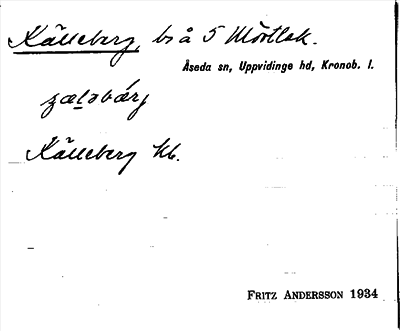 Källeberg, bs å 5 Mörtlek.
Åseda sn, Uppvidinge hd, Kronob. l.
Källeberg kb.
FRITZ ANDERSSON 1934